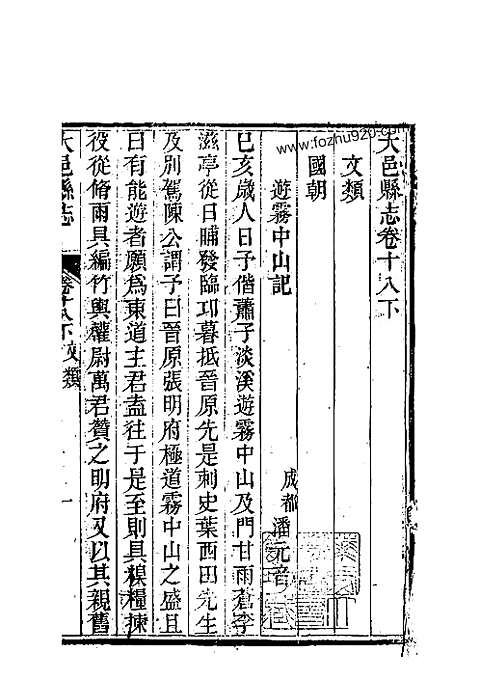 大邑縣志卷十八下
文類
國朝
遊霧中山記
成都潘元音
巳亥歲人日子偕蕭子淡溪遊霧中山及門甘雨蒼李
滋亭從日晡發臨邛暮抵晉原先是刺史葉西田先生
及別駕陳公謂子曰晉原張明府極道霧中山之盛且
曰有能遊者願爲東道主君盍往于是至則具糗糧揀
役從脩雨具編竹輿權尉萬君贊之明府又以其親舊
大邑縣志
卷十八下文類
一
www.fozhu920.com